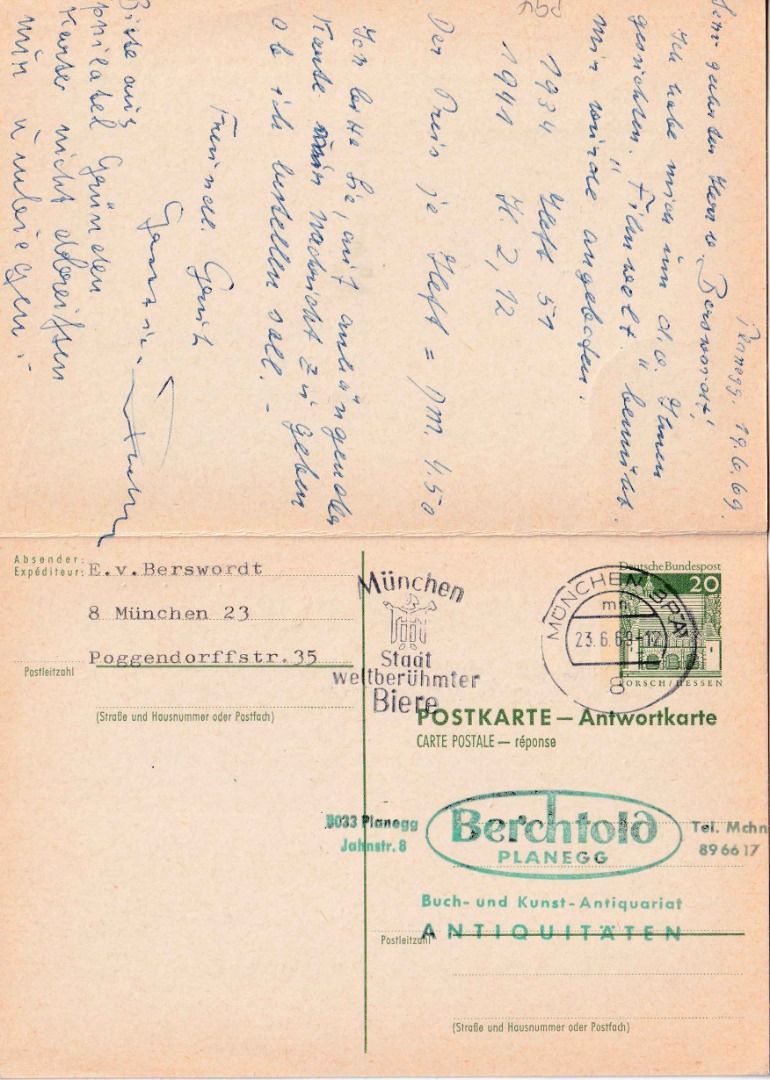 Planegg. 19.6.69.
Sehr geehrter Herr v. Berswordt!
Ich habe mich um d. v. Ihnen
gesuchten "Filmwelt" bemüht.
Mir wurde angeboten:
1934 Heft 51
1941 H. 2, 12
Der Preis je Heft = DM. 4.50
Ich bitte Sie, mit anhängender
Karte mir Nachricht zu geben
ob ich bestellen soll. –
Freundl. Gruß
Bitte aus
philatel Gründen
Karte nicht abreissen
nur umbiegen! –
Absender:
Expéditeur: E.v.Berswordt
8 München 23
Postleitzahl
Poggendorffstr.35
(Straße und Hausnummer oder Postfach)
München
Stadt
weltberühmter
Biere
MÜNCHEN BPA
mn
23.6.69-12
8
Deutsche Bundespost
20
LORSCH/HESSEN
POSTKARTE — Antwortkarte
CARTE POSTALE — réponse
8033 Planegg
Jahnstr. 8
Berchtold
PLANEGG
Tel. Mchn
89 66 17
Buch- und Kunst-Antiquariat
ANTIQUITÄTEN
Postleitzahl
(Straße und Hausnummer oder Postfach)